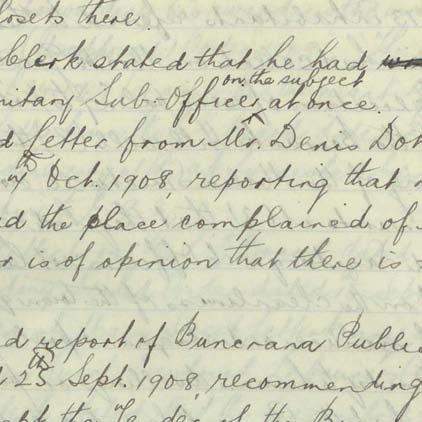 losets there.
Clerk stated that he had
on the subject
nitary Sub-Officer at once.
d letter from Mr. Denis Doh
7th Oct. 1908, reporting that
ed the place complained of
r is of opinion that there is
d report of Buncrana Public
25th Sept. 1908, recommending
the of the